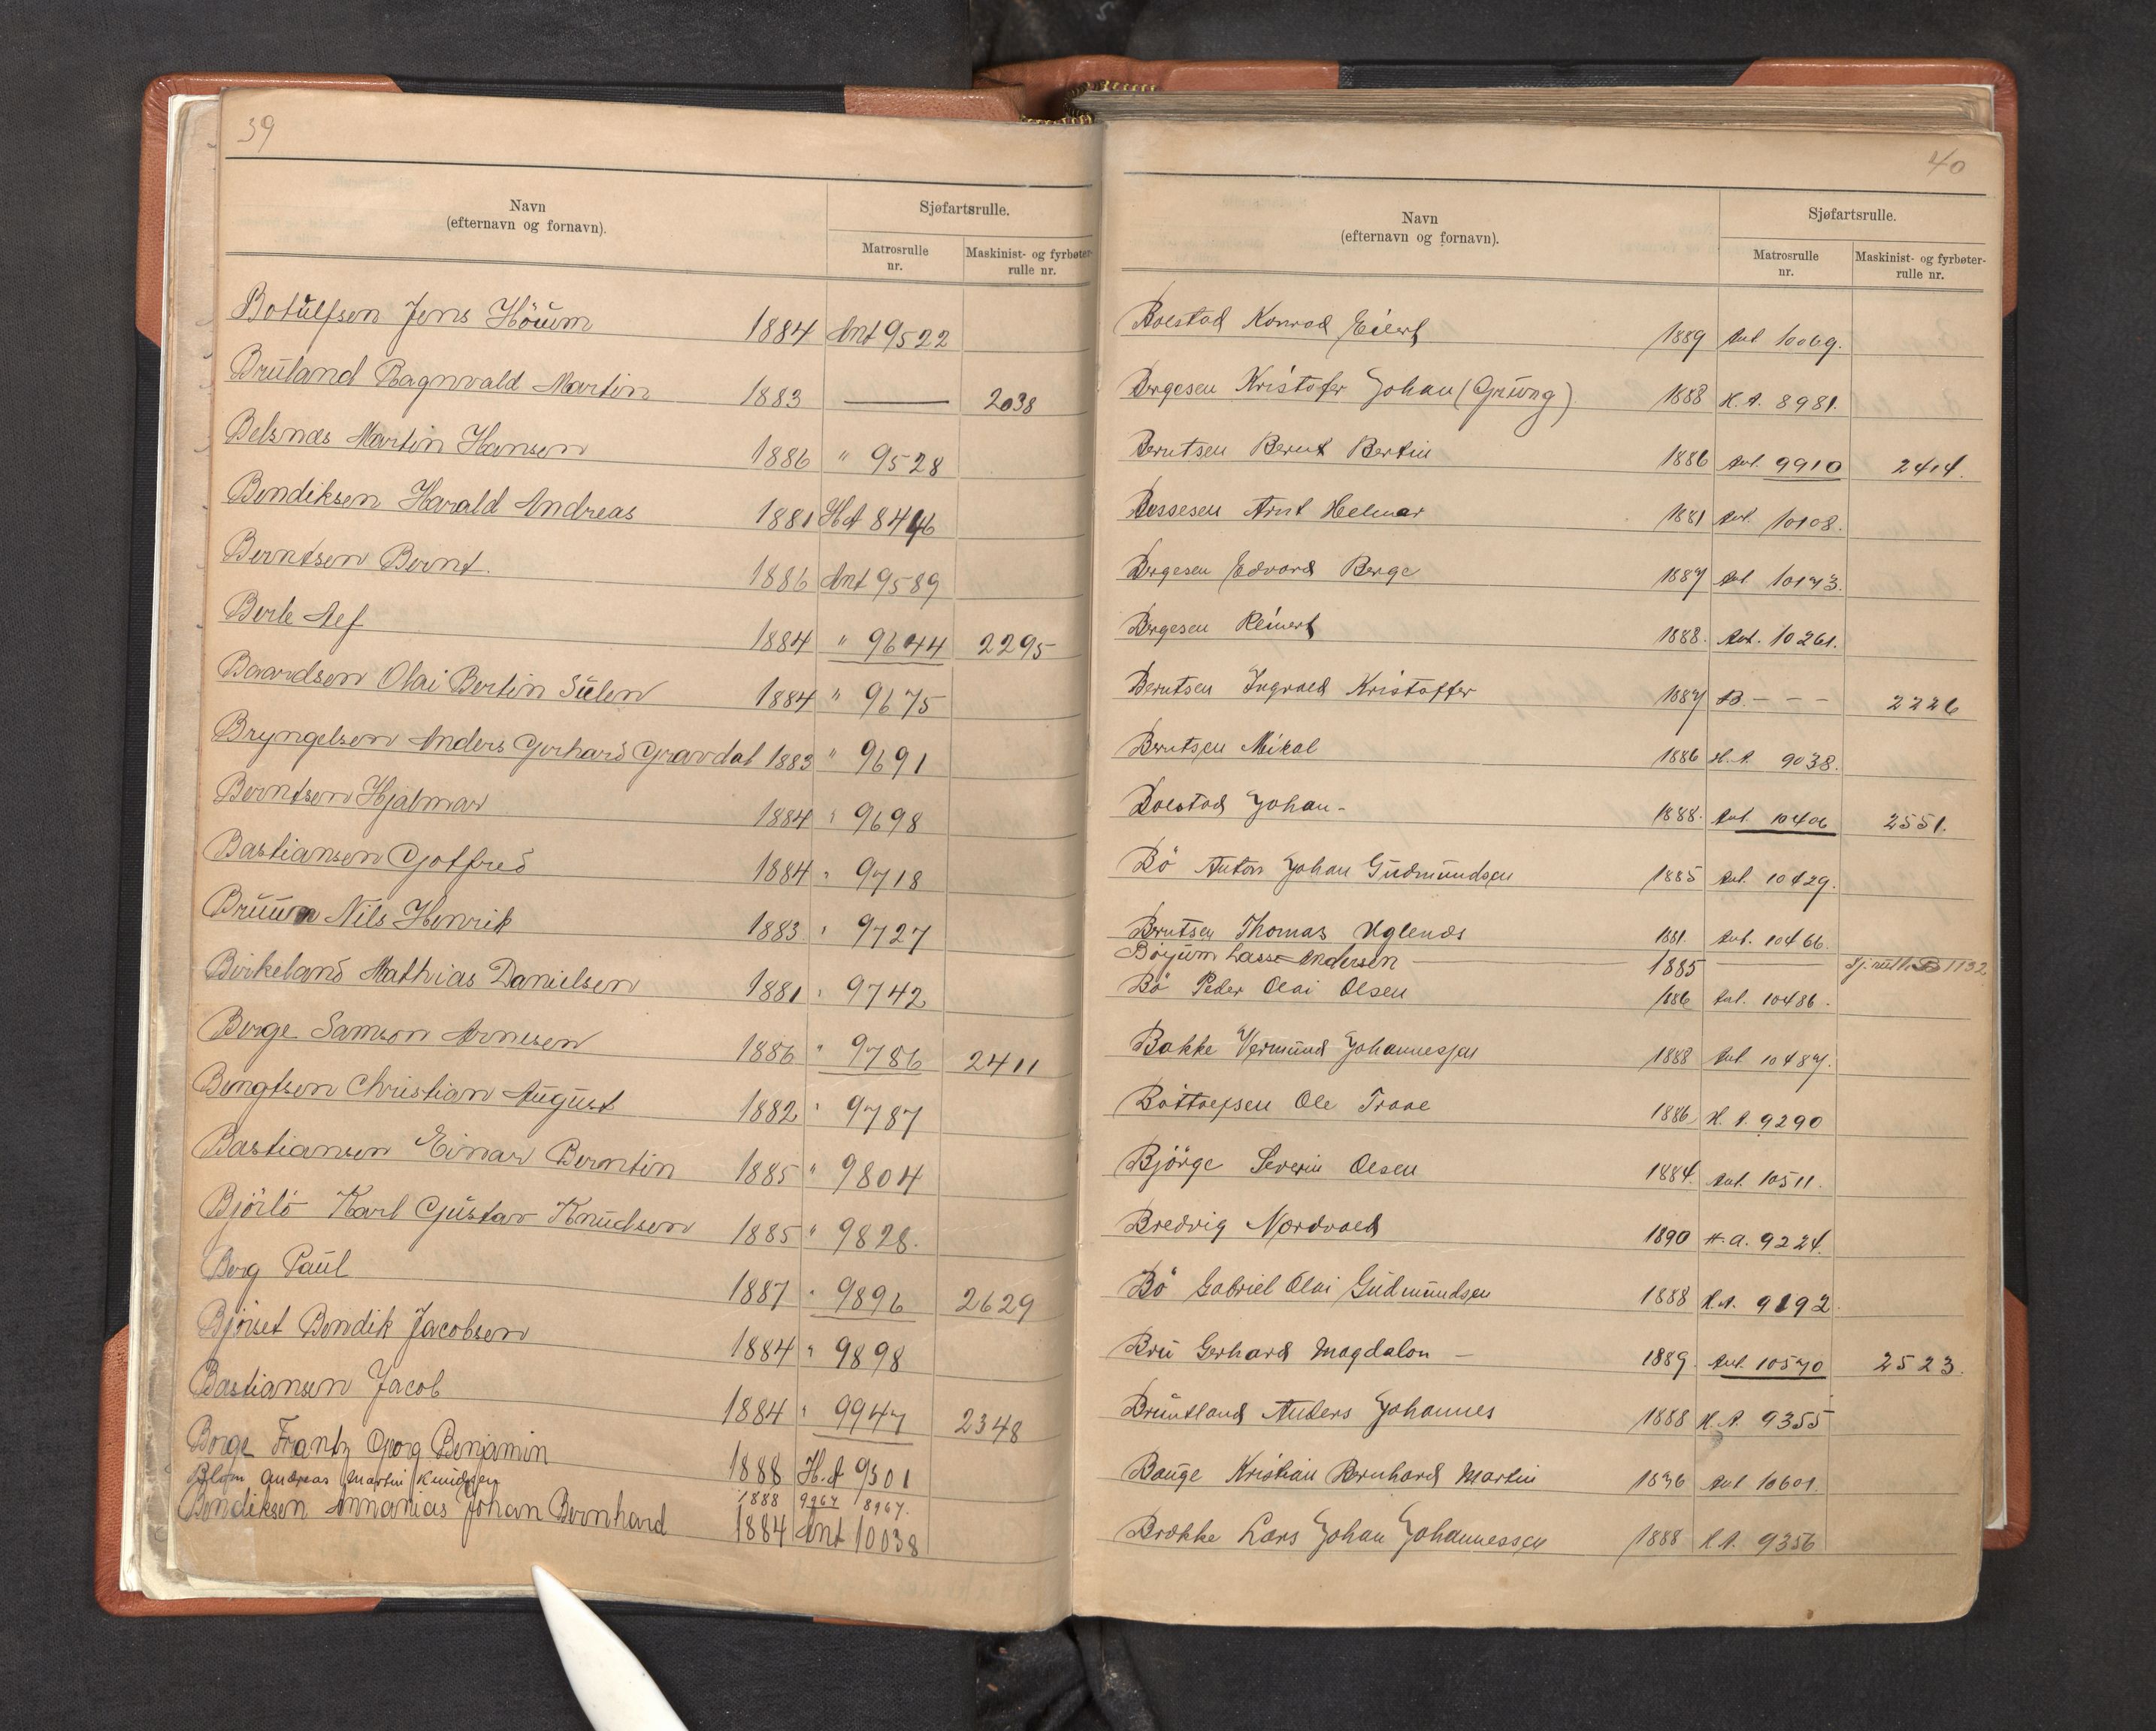 39
Navn
(efternavn og fornavn).
Sjøfartsrulle.
Matrosrulle
nr.
Maskinist- og fyrbøter-
rulle nr.
Botulfsen Jens Höium 1884 Ant 9522
Bruland Ragnvald Martin 1883 — 2038
Belsnæs Martin Hansen 1886 " 9528
Bendiksen Harald Andreas 1881 H.A 8446
Berntsen Bernt. 1886 Ant 9589
Berle Alf 1884 " 9644 2295
Baardsen Olai Bertin Sulen 1884 " 9675
Bryngelsen Anders Gerhard Gravdal 1883 " 9691
Berntsen Hjalmar 1884 " 9698
Bastiansen Gotfred 1884 " 9718
Bruun Nils Henrik 1883 " 9727
Birkeland Mathias Danielsen 1881 " 9742
Berge Samson Arnesen 1886 " 9786 2411
Bengtsen Christian August 1882 " 9787
Bastiansen Einar Berntin 1885 " 9804
Bjórlo Karl Gustav Knudsen 1885 " 9828.
Berg Paul 1887 " 9896 2629
Bjórset Bendik Jacobsen 1884 " 9898
Bastiansen Jacob 1884 " 9947 2348
Borge Frantz Georg Benjamin 1888 H.A 9301
Blom Andreas Martin Knudsen 1888 9967 8967.
Bendiksen Annanias Johan Bernhard 1884 Ant 10038
40
Navn
(efternavn og fornavn).
Sjøfartsrulle.
Matrosrulle
nr.
Maskinist- og fyrbøter-
rulle nr.
Bolstad Konrad Eilert 1889 Ant 10069.
Børgesen Kristofer Johan (Grüong) 1888 H.A. 8981.
Berntsen Bernt Bertin 1886 Ant. 9910 2414.
Bessesen Arnt Helmer 1881 Ant. 10108.
Børgesen Edvard Berge 1887 Ant 10173.
Børgesen Reinert 1888. Ant. 10261.
Berntsen Ingvald Kristoffer 1887 B. - - - 2226
Berntsen Mikal 1886 H.A. 9038.
Bolstad Johan - 1888. Ant 10406 2551.
Bö Anton Johan Gudmundsen 1885 Ant. 10429.
Berntsen Thomas Uglends 1881. Ant. 10466.
Böyum Lasse Andersen — 1885 — Sj. rull. B 1132
Bö Peder Olai Olsen 1886 Ant. 10486.
Bakke Vermund Johannessen 1888 Ant. 10487.
Bottolfsen Ole Traae 1886. H.A. 9290
Björge Severin Olsen 1884. Ant. 10511.
Bredvig Nordvald 1890 H.A. 9224.
Bö Gabriel Olai Gudmundsen 1888 H.A. 9192.
Bru Gerhard Magdalon — 1889. Ant. 10570 2523.
Bruntland Anders Johannes 1888 H.A. 9355
Bauge Kristian Bernhard Martin 1876 Ant 10601.
Brække Lars Johan Johannessen 1888 H.A. 9356